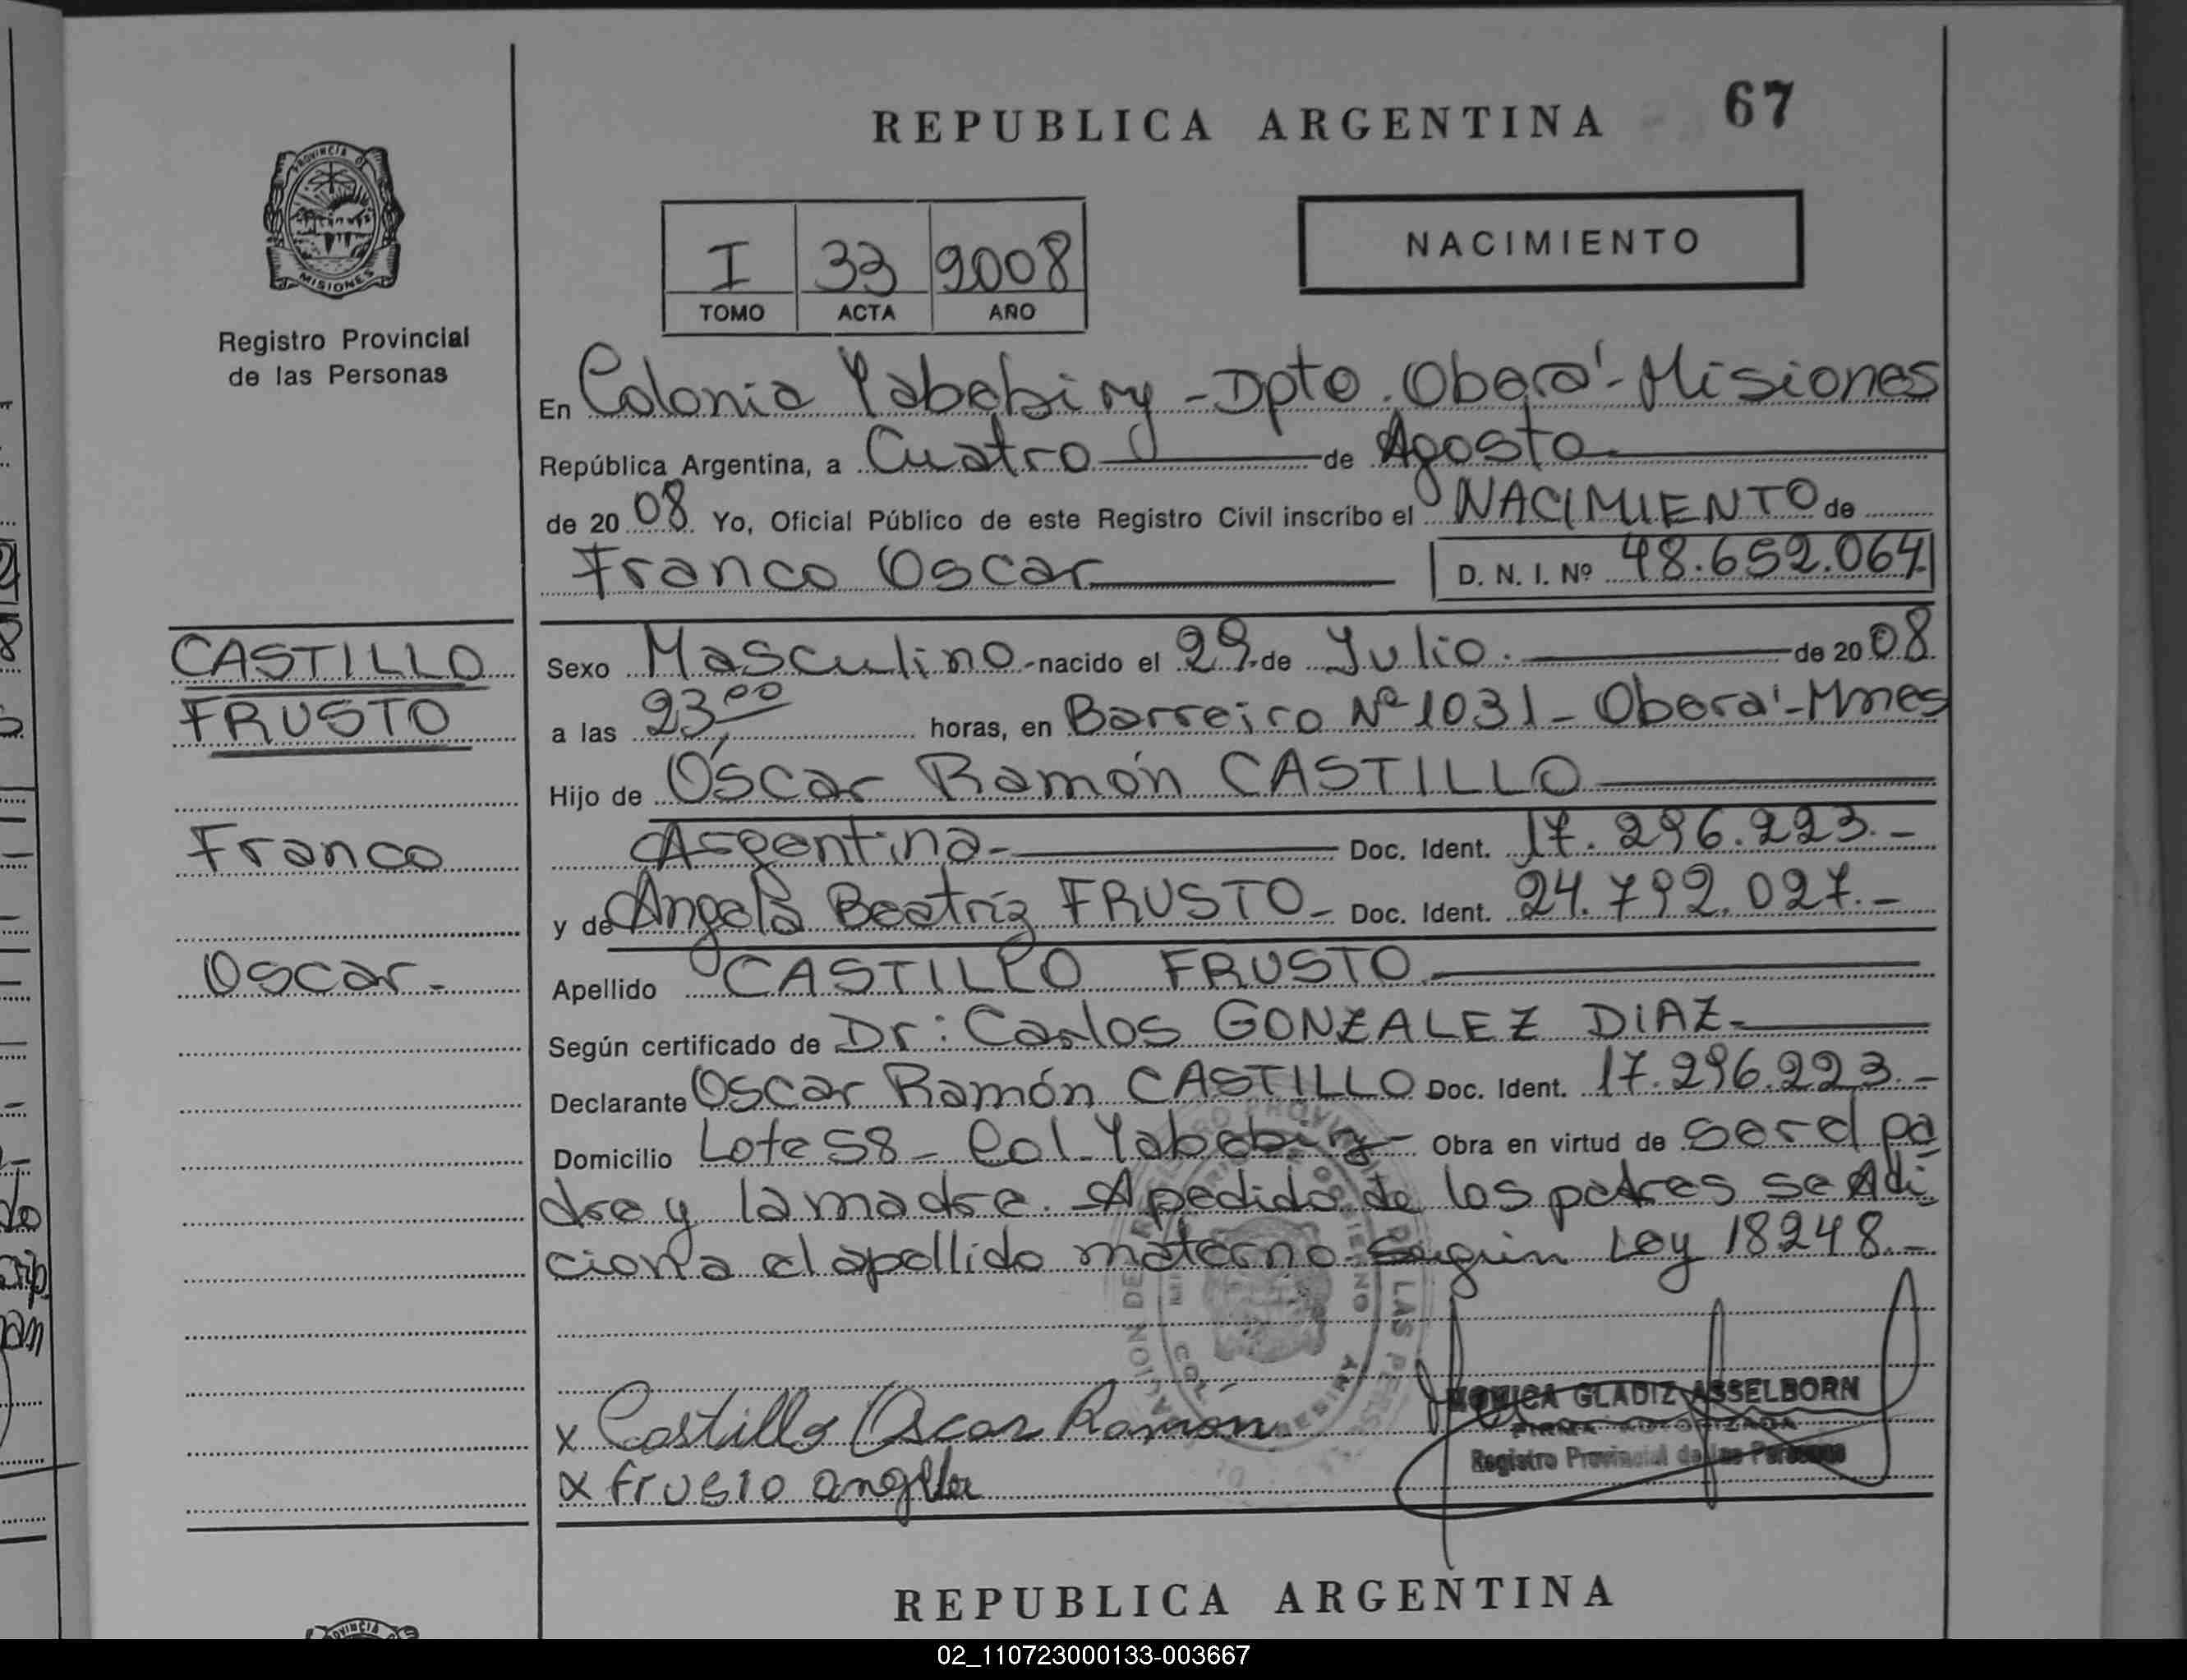 REPUBLICA ARGENTINA 67
PROVINCIA D
MISIONES
Registro Provincial
de las Personas
I 33 2008
TOMO ACTA AÑO
NACIMIENTO
En Colonia Yabebiry - Dpto. Oberá - Misiones
República Argentina, a Cuatro de Agosto
de 2008 Yo, Oficial Público de este Registro Civil inscribo el NACIMIENTO de
Franco Oscar D. N. I. Nº 48.652.064
CASTILLO
FRUSTO
Franco
Oscar.-
Sexo Masculino - nacido el 29 de Julio. de 2008
a las 23,00 horas, en Barreiro Nº 1031 - Oberá - Mnes
Hijo de Oscar Ramón CASTILLO
Argentina- Doc. Ident. 17.296.223.-
y de Angela Beatríz FRUSTO - Doc. Ident. 24.792.027.-
Apellido CASTILLO FRUSTO
Según certificado de Dr: Carlos GONZALEZ DIAZ-
Declarante Oscar Ramón CASTILLO Doc. Ident. 17.296.223.-
Domicilio Lote 58 - Col. Yabebiry - Obra en virtud de ser el pa
dre y la madre. A pedido de los padres se Adi
ciona el apellido materno según Ley 18248.-
x Castillo Oscar Ramón
x frusto angela
MONICA GLADIZ ASSELBORN
FIRMA AUTORIZADA
Registro Provincial de las Personas
REPUBLICA ARGENTINA
02_110723000133-003667